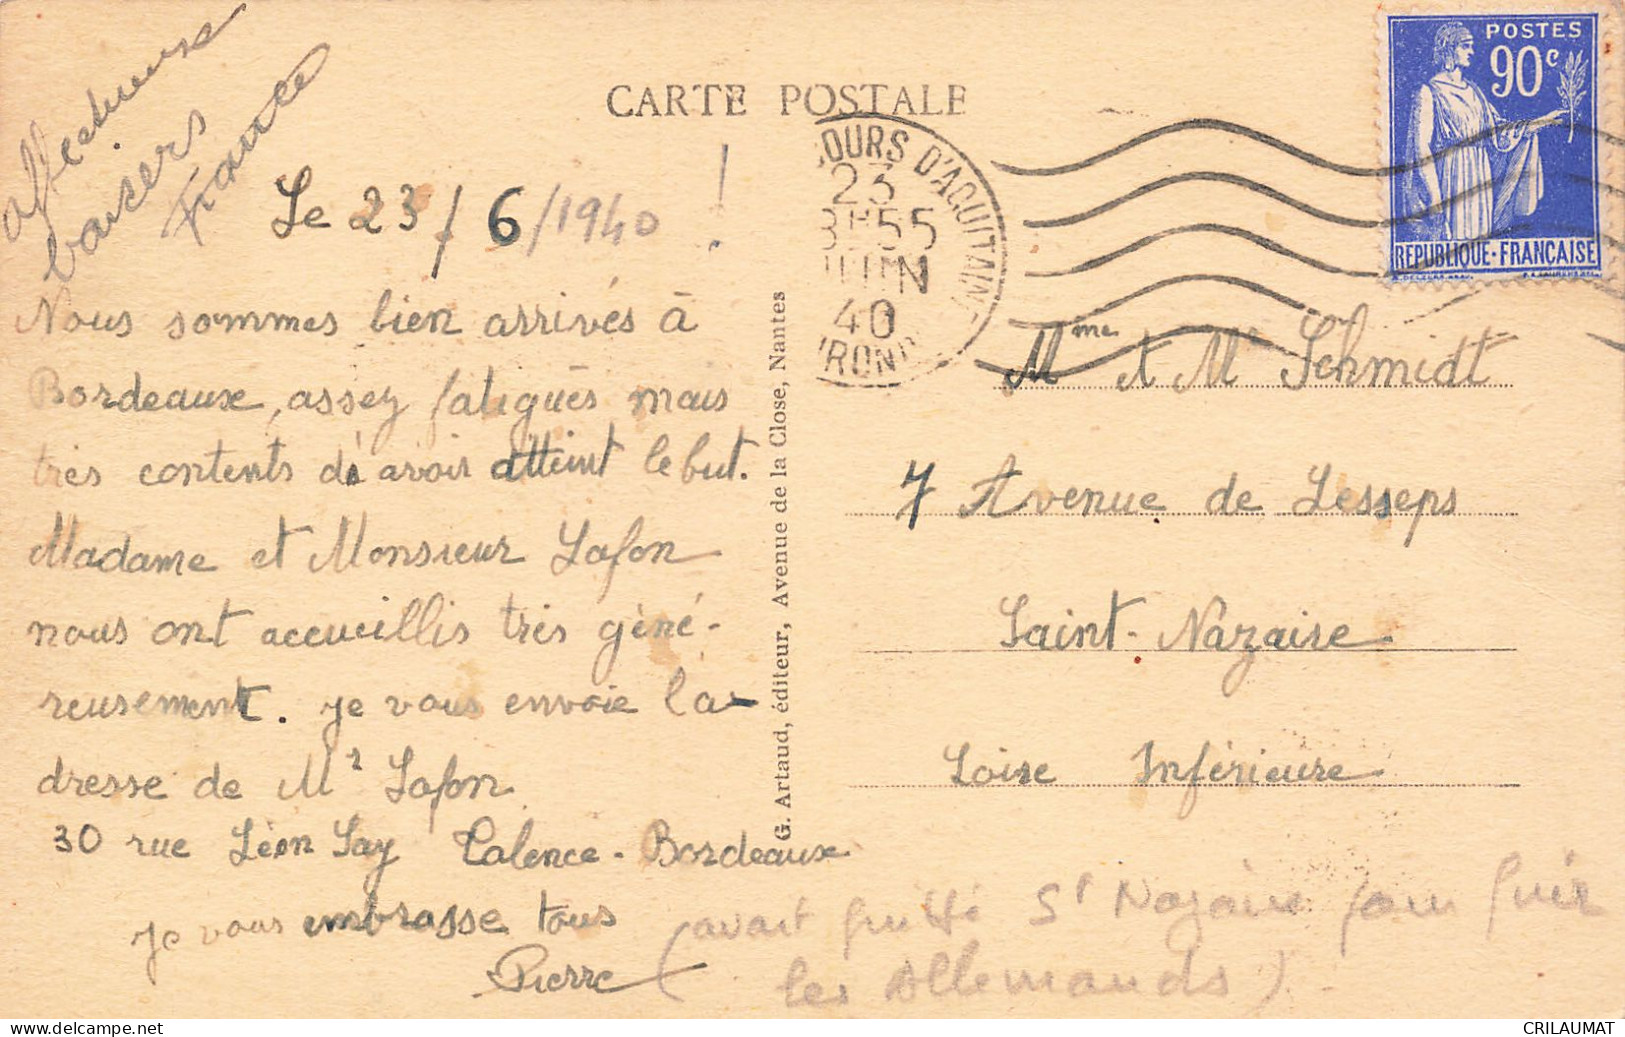 affectueux
baisers
France
CARTE POSTALE
POSTES
90c
REPUBLIQUE-FRANCAISE
OURS D'AQUITAINE
23
55
JUIN
40
IRONDE
Le 23/6/1940 !
Nous sommes bien arrivés à
Bordeaux, assez fatigués mais
très contents d'avoir atteint le but.
Madame et Monsieur Lafon
nous ont accueillis très géné-
reusement. je vous envoie l'a-
dresse de Mr Lafon
30 rue Léon Say Talence - Bordeaux
je vous embrasse tous
Pierre
G. Artaud, éditeur, Avenue de la Close, Nantes
Mme et Mr Schmidt
7 Avenue de Lesseps
Saint-Nazaire
Loire Inférieure
(avait quitté St Nazaire pour fuir
les Allemands)
CRILAUMAT
www.delcampe.net